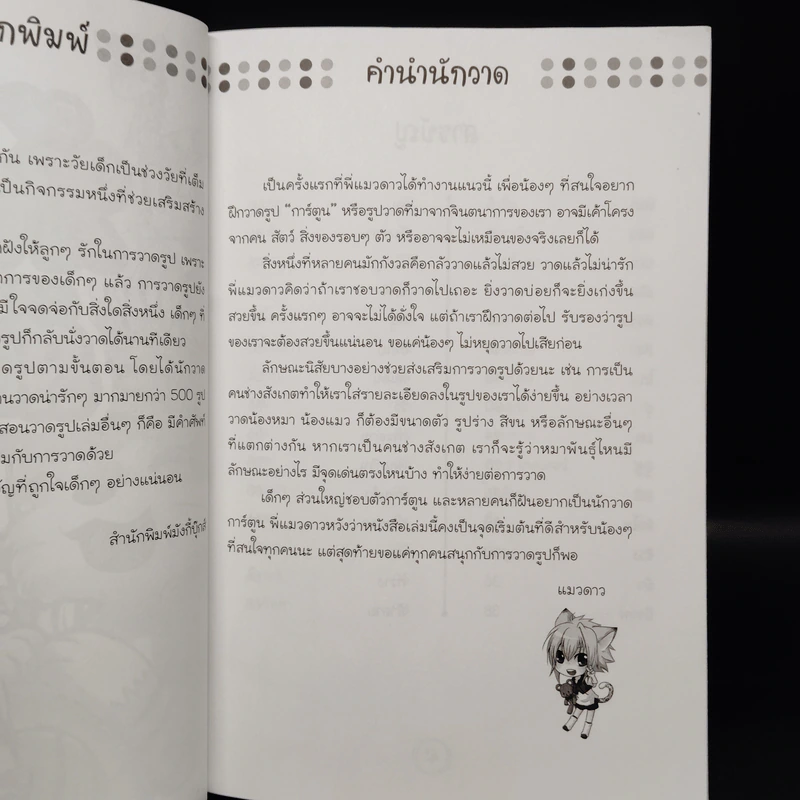 กพิมพ์
กัน เพราะวัยเด็กเป็นช่วงวัยที่เต็ม
เป็นกิจกรรมหนึ่งที่ช่วยเสริมสร้าง
ฝังให้ลูกๆ รักในการวาดรูป เพราะ
การของเด็กๆ แล้ว การวาดรูปยัง
มีใจจดจ่อกับสิ่งใดสิ่งหนึ่ง เด็กๆ ที่
รูปก็กลับนั่งวาดได้นานทีเดียว
ดรูปตามขั้นตอน โดยได้นักวาด
านวาดน่ารักๆ มากมายกว่า 500 รูป
สอนวาดรูปเล่มอื่นๆ ก็คือ มีคำศัพท์
มกับการวาดด้วย
ัญที่ถูกใจเด็กๆ อย่างแน่นอน
สำนักพิมพ์มังกี้บุ๊กส์
คำนำนักวาด
เป็นครั้งแรกที่พี่แมวดาวได้ทำงานแนวนี้ เพื่อน้องๆ ที่สนใจอยาก
ฝึกวาดรูป “การ์ตูน” หรือรูปวาดที่มาจากจินตนาการของเรา อาจมีเค้าโครง
จากคน สัตว์ สิ่งของรอบๆ ตัว หรืออาจจะไม่เหมือนของจริงเลยก็ได้
สิ่งหนึ่งที่หลายคนมักกังวลคือกลัววาดแล้วไม่สวย วาดแล้วไม่น่ารัก
พี่แมวดาวคิดว่าถ้าเราชอบวาดก็วาดไปเถอะ ยิ่งวาดบ่อยก็จะยิ่งเก่งขึ้น
สวยขึ้น ครั้งแรกๆ อาจจะไม่ได้ดั่งใจ แต่ถ้าเราฝึกวาดต่อไป รับรองว่ารูป
ของเราจะต้องสวยขึ้นแน่นอน ขอแค่น้องๆ ไม่หยุดวาดไปเสียก่อน
ลักษณะนิสัยบางอย่างช่วยส่งเสริมการวาดรูปด้วยนะ เช่น การเป็น
คนช่างสังเกตทำให้เราใส่รายละเอียดลงในรูปของเราได้ง่ายขึ้น อย่างเวลา
วาดน้องหมา น้องแมว ก็ต้องมีขนาดตัว รูปร่าง สีขน หรือลักษณะอื่นๆ
ที่แตกต่างกัน หากเราเป็นคนช่างสังเกต เราก็จะรู้ว่าหมาพันธุ์ไหนมี
ลักษณะอย่างไร มีจุดเด่นตรงไหนบ้าง ทำให้ง่ายต่อการวาด
เด็กๆ ส่วนใหญ่ชอบตัวการ์ตูน และหลายคนก็ฝันอยากเป็นนักวาด
การ์ตูน พี่แมวดาวหวังว่าหนังสือเล่มนี้คงเป็นจุดเริ่มต้นที่ดีสำหรับน้องๆ
ที่สนใจทุกคนนะ แต่สุดท้ายขอแค่ทุกคนสนุกกับการวาดรูปก็พอ
แมวดาว